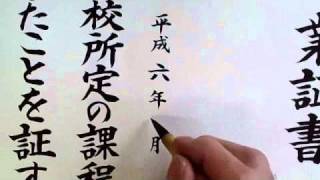 業証書
平成六年 月
校所定の課程
たことを証す